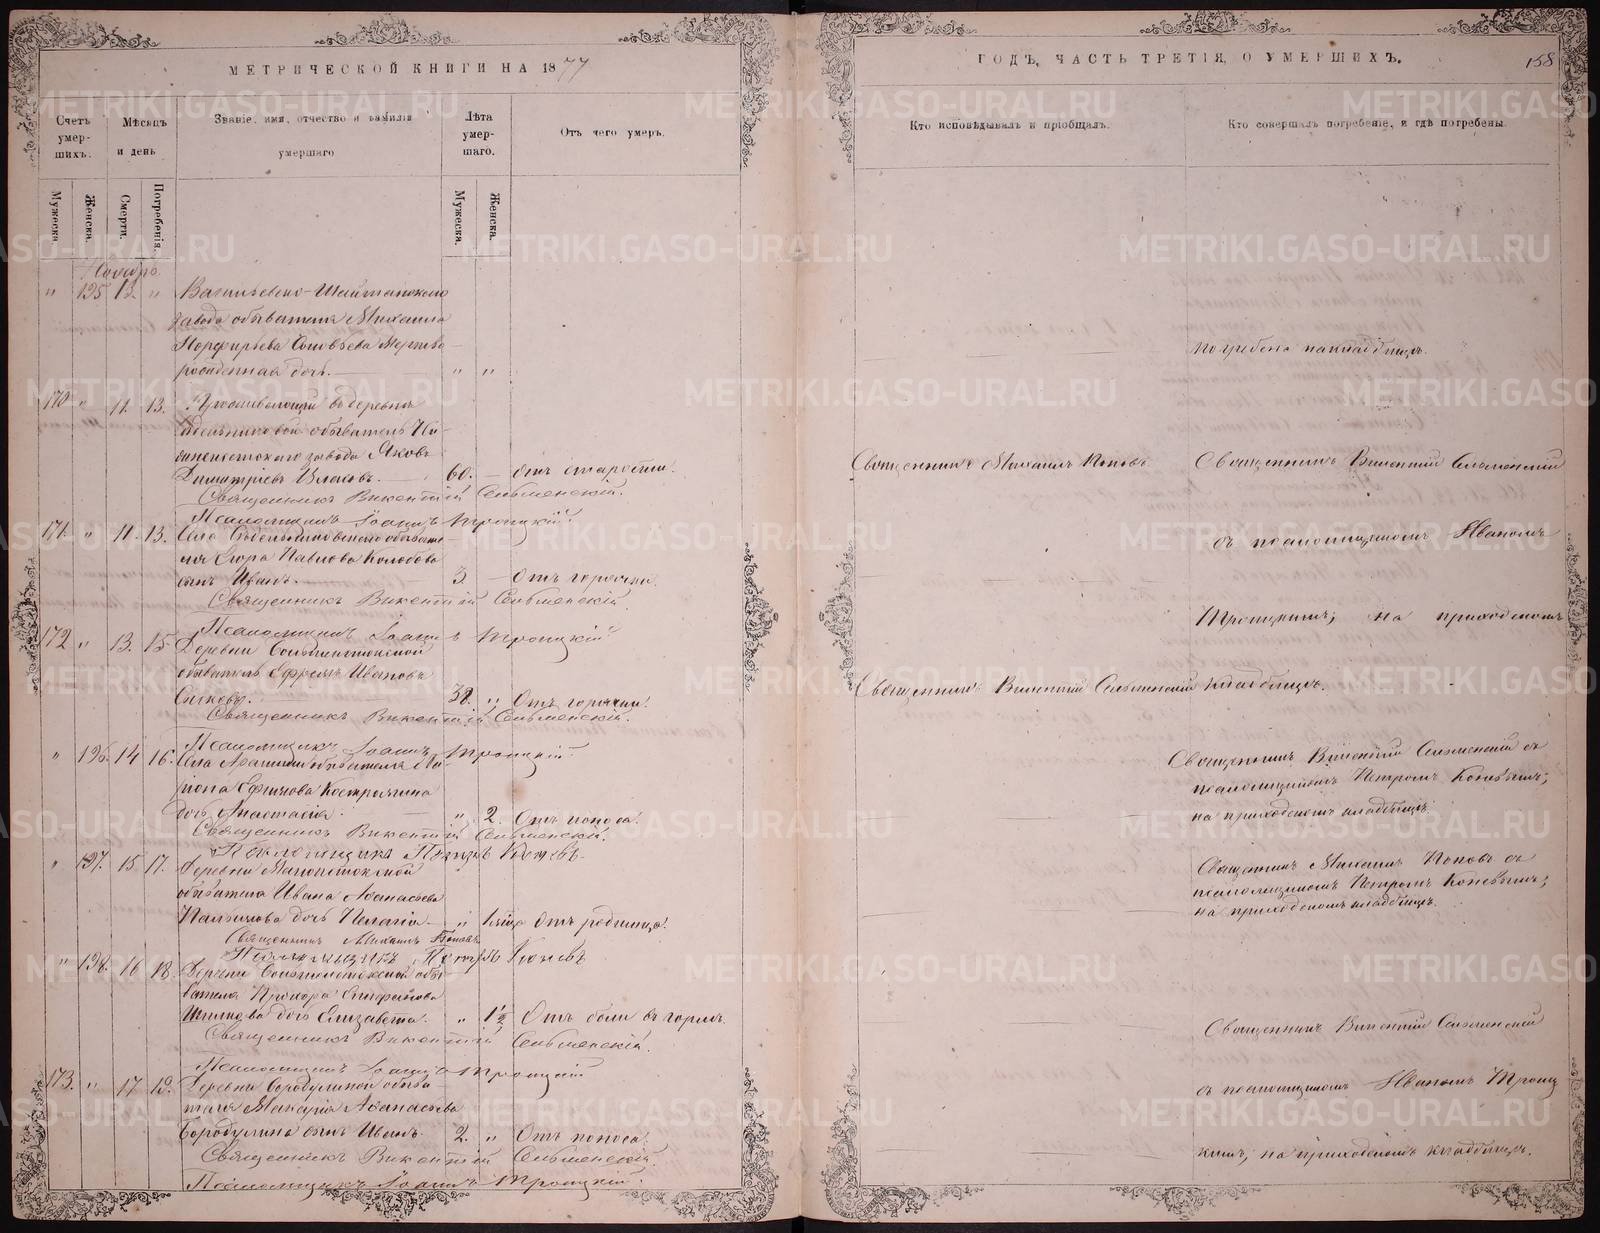 МЕТРИЧЕСКОЙ КНИГИ НА 1877
ГОДЪ, ЧАСТЬ ТРЕТІЯ, О УМЕРШИХЪ.
158
Счетъ умер-шихъ.
Мѣсяцъ и день
Званіе, имя, отчество и фамилія умершаго
Лѣта умер-шаго.
Отъ чего умеръ.
Кто исповѣдывалъ и пріобщалъ.
Кто совершалъ погребеніе, и гдѣ погребены.
Мужеска.
Женска.
Смерти.
Погребенія.
Мужеска.
Женска.
Ноябрь
" 195 13. " Васильевско-Шайтанскаго
завода обывателя Михаила
Порфирьева Соловьева мертво
рожденная дочь. " "
погребена на кладбищѣ.
170 " 11. 13. Проживающій въ деревнѣ
обыватель
завода Яковъ
Димитріевъ Власовъ. 60. — отъ старости.
Священникъ Михаилъ Поповъ
Священникъ Викентій Сельменскій
Священникъ Викентій Сельменскій.
Псаломщикъ Іоаннъ Троицкій
171. " 11. 13. Села обывате-
ля Павлова
сынъ Иванъ. 3 — Отъ горячки.
съ псаломщикомъ Иваномъ
Священникъ Викентій Сельменскій.
Троицкимъ; на приходскомъ
Псаломщикъ Іоаннъ Троицкій
172 " 13. 15. Деревни
обыватель Ефремъ Ивановъ
38. " Отъ горячки.
Священникъ Викентій Сельменскій
кладбищѣ.
Священникъ Викентій Сельменскій.
Псаломщикъ Іоаннъ Троицкій
" 196. 14 16. Села обывателя
Ефимова Костромина
дочь Анастасія. " 2. Отъ поноса.
Священникъ Викентій Сельменскій съ
псаломщикомъ Петромъ Коневымъ;
на приходскомъ кладбищѣ.
Священникъ Викентій Сельменскій.
Псаломщикъ Петръ Коневъ.
" 197. 15 17. Деревни
обывателя Ивана Аѳанасьева
дочь Пелагія — " Отъ родимца.
Священникъ Михаилъ Поповъ съ
псаломщикомъ Петромъ Коневымъ;
на приходскомъ кладбищѣ.
Священникъ Михаилъ Поповъ
Псаломщикъ Петръ Коневъ
" 198. 16 18. Деревни обы-
вателя Прохора
дочь Елизавета. " 1½ Отъ боли въ горлѣ.
Священникъ Викентій Сельменскій
Священникъ Викентій Сельменскій.
Псаломщикъ Іоаннъ Троицкій
173. " 17 19. Деревни Бородулиной обыва-
теля Макарія Аѳанасьева
Бородулина сынъ Иванъ. 2. " Отъ поноса.
съ псаломщикомъ Иваномъ Троиц
кимъ; на приходскомъ кладбищѣ.
Священникъ Викентій Сельменскій.
Псаломщикъ Іоаннъ Троицкій.
METRIKI.GASO-URAL.RU